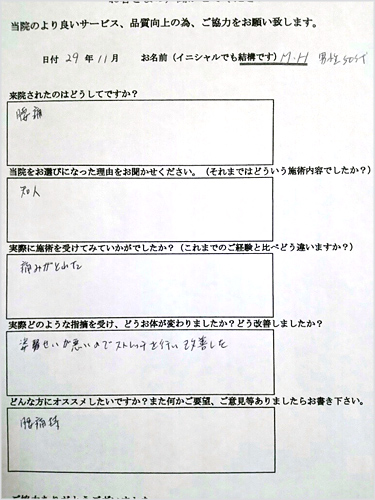 当院のより良いサービス、品質向上の為、ご協力をお願い致します。
日付 29 年 11 月 お名前（イニシャルでも結構です）M.H 男性 50才
来院されたのはどうしてですか？
腰痛
当院をお選びになった理由をお聞かせください。（それまではどういう施術内容でしたか？）
知人
実際に施術を受けてみていかがでしたか？（これまでのご経験と比べどう違いますか？）
痛みがとれた
実際どのような指摘を受け、どうお体が変わりましたか？どう改善しましたか？
姿勢せいが悪いのでストレッチを行い改善した
どんな方にオススメしたいですか？また何かご要望、ご意見等ありましたらお書き下さい。
腰痛持